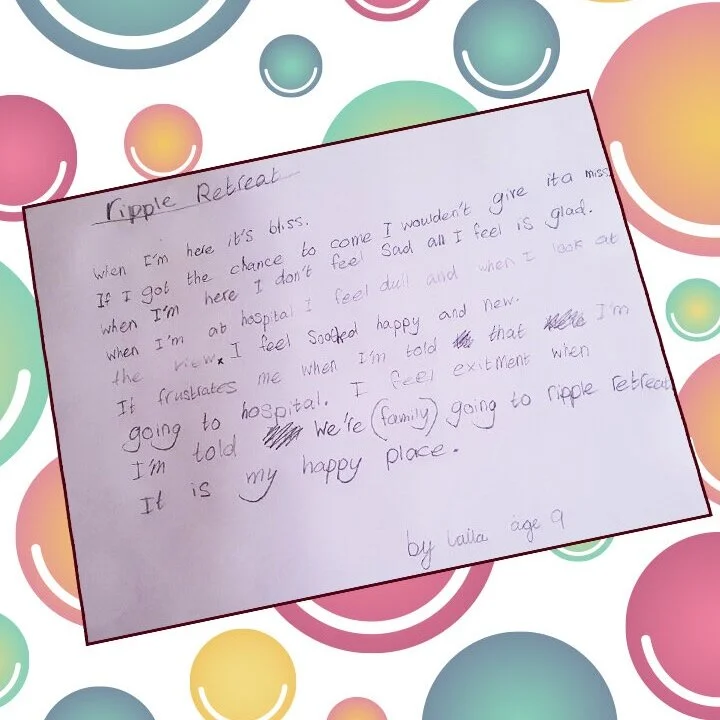 ripple Retreat
When I'm here it's bliss.
If I got the chance to come I woulden't give it a miss.
when I'm here I don't feel sad all I feel is glad.
when I'm at hospital I feel dull and when I look at
the view I feel Soothed happy and new.
It frustrates me when I'm told that I'm
going to hospital. I feel exitment when
I'm told We're (family) going to ripple retreat
It is my happy place.
by Laila age 9